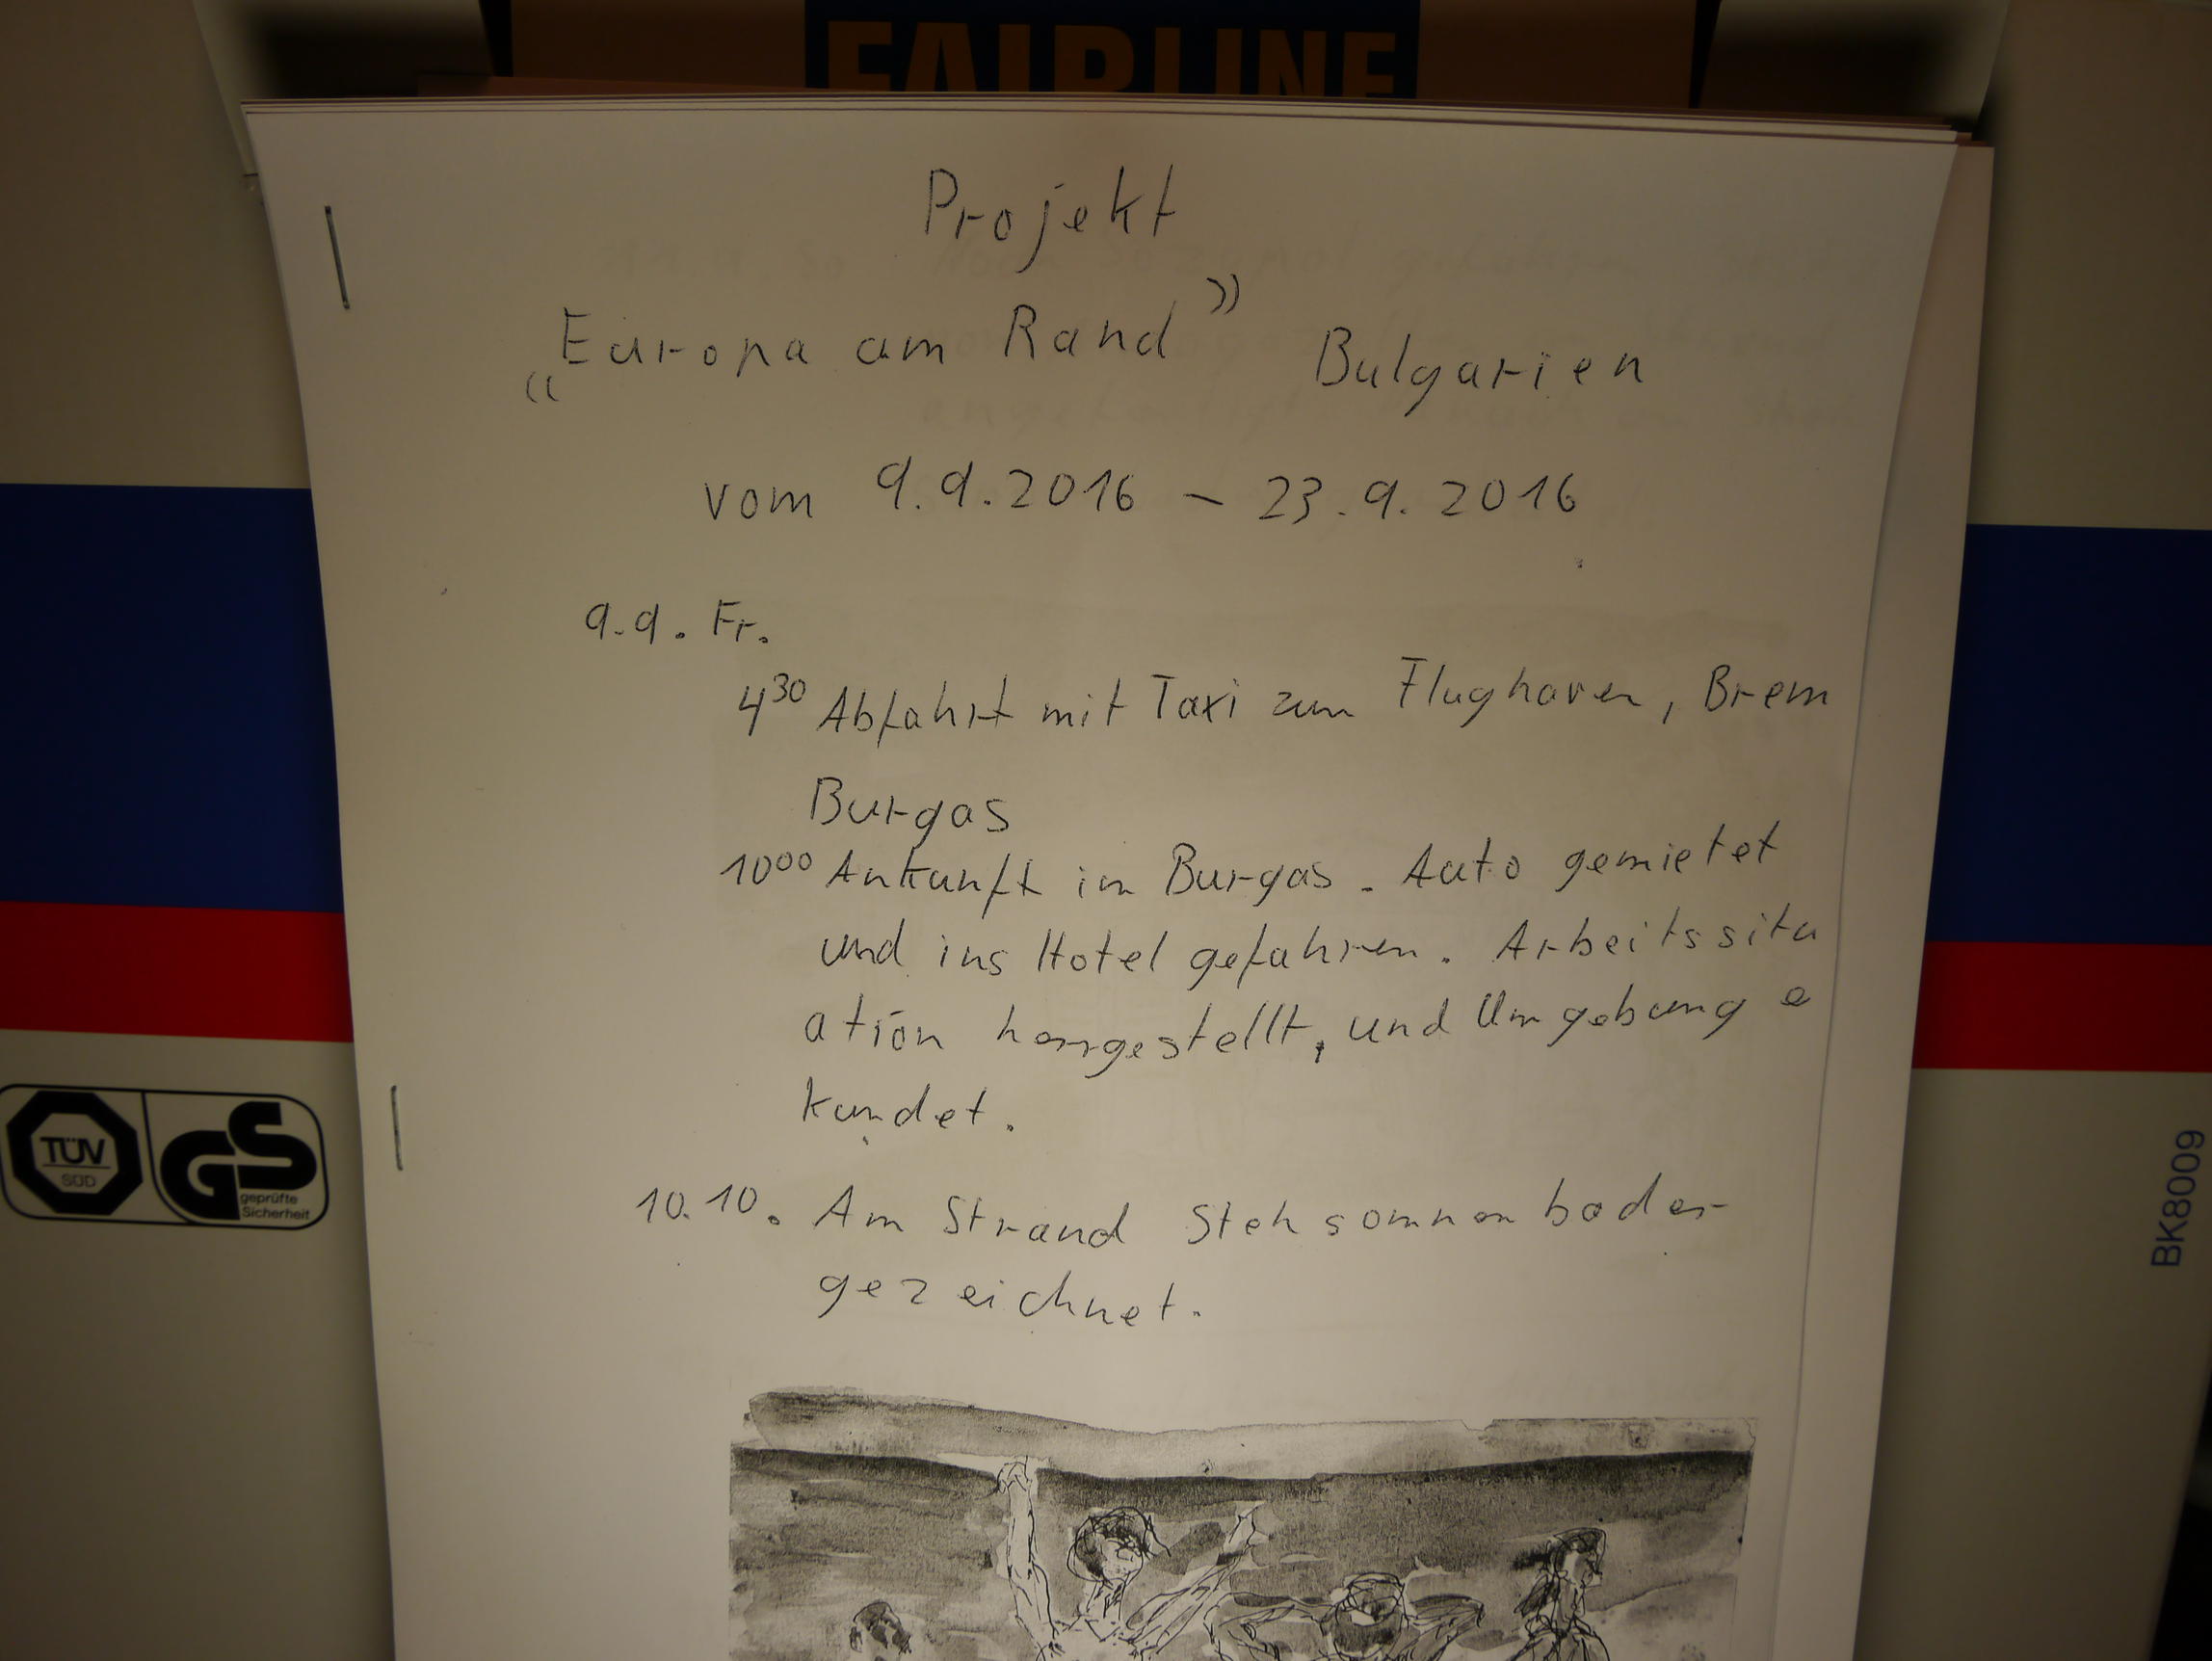 FAIRLINE
Projekt
„Europa am Rand” Bulgarien
vom 9.9.2016 – 23.9.2016
9.9. Fr.
4³⁰ Abfahrt mit Taxi zum Flughaven, Brem
Burgas
10⁰⁰ Ankunft in Burgas. Auto gemietet
und ins Hotel gefahren. Arbeitssitu
ation hergestellt, und Umgebung e
kundet.
10.10. Am Strand Stehsonnenbader
gezeichnet.
TÜV
SÜD
GS
geprüfte
Sicherheit
BK8009